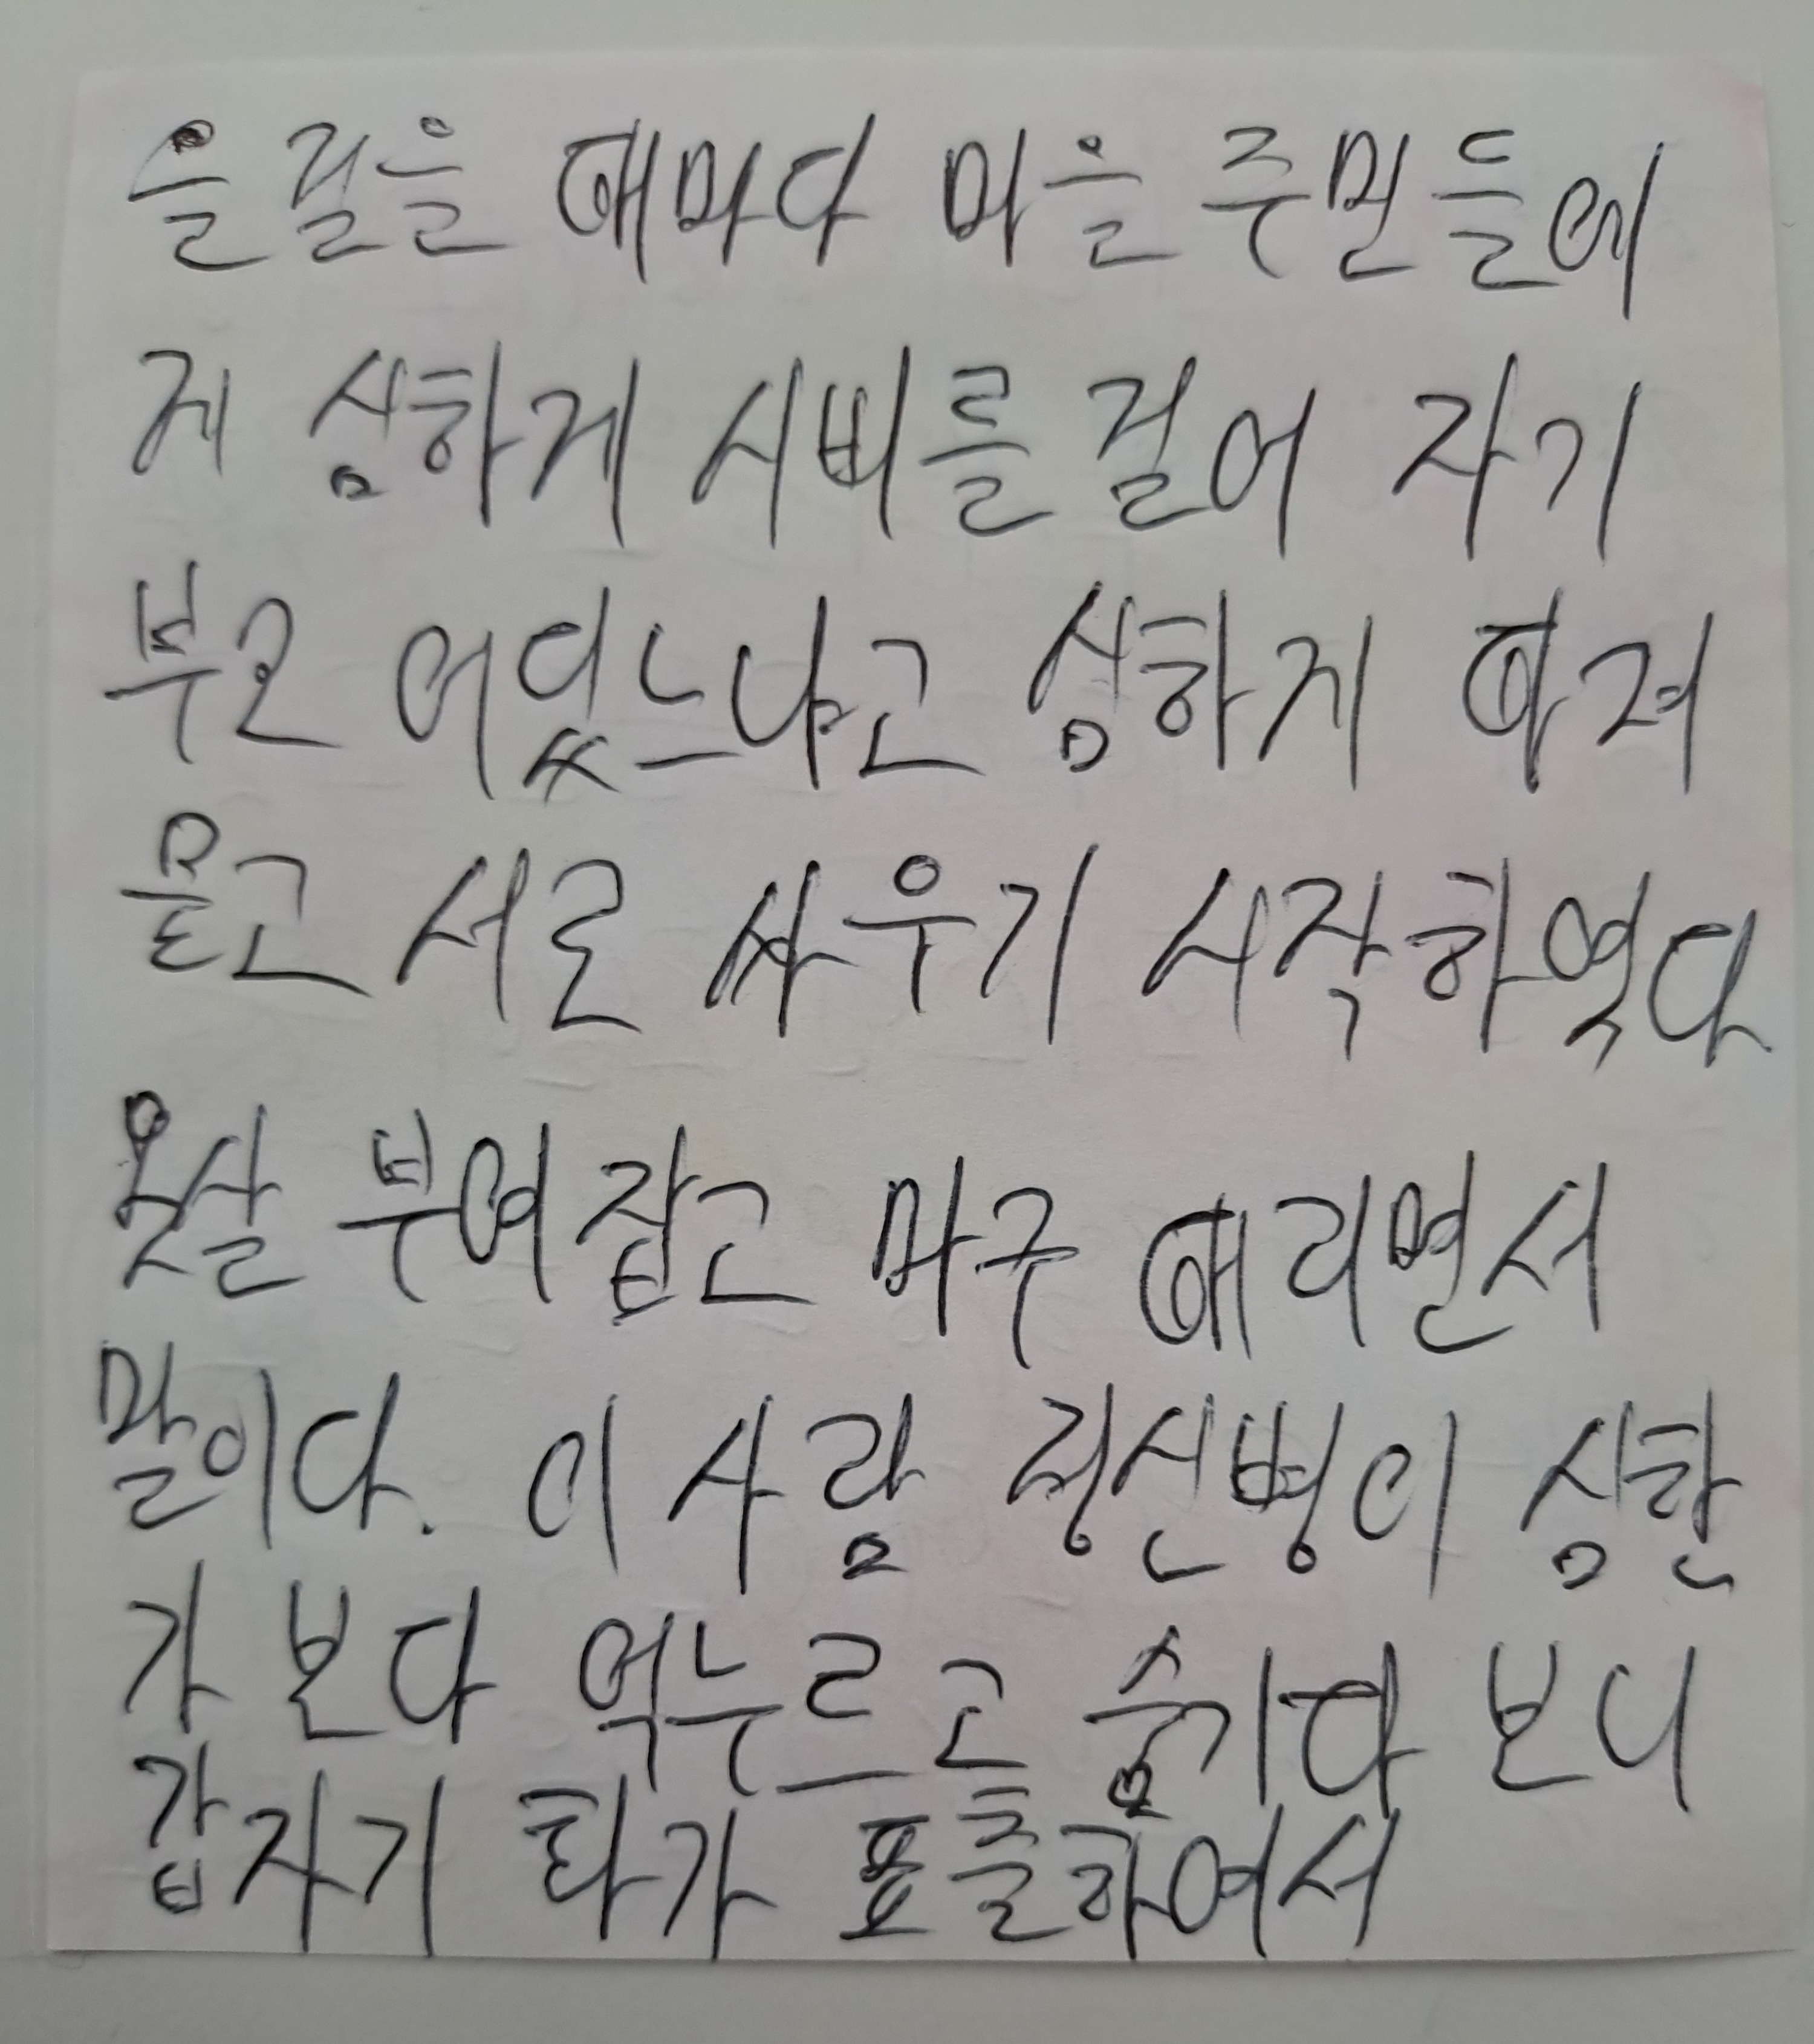 을 걸을 때마다 마을 주민들에
게 심하게 시비를 걸어 자기
부모 어딨느냐고 심하게 따져
묻고 서로 싸우기 시작하였다
옷살 부여잡고 마구 때리면서
말이다. 이 사람 정신병이 심한
가 보다 억누르고 숨기다 보니
갑자기 화가 표출하여서